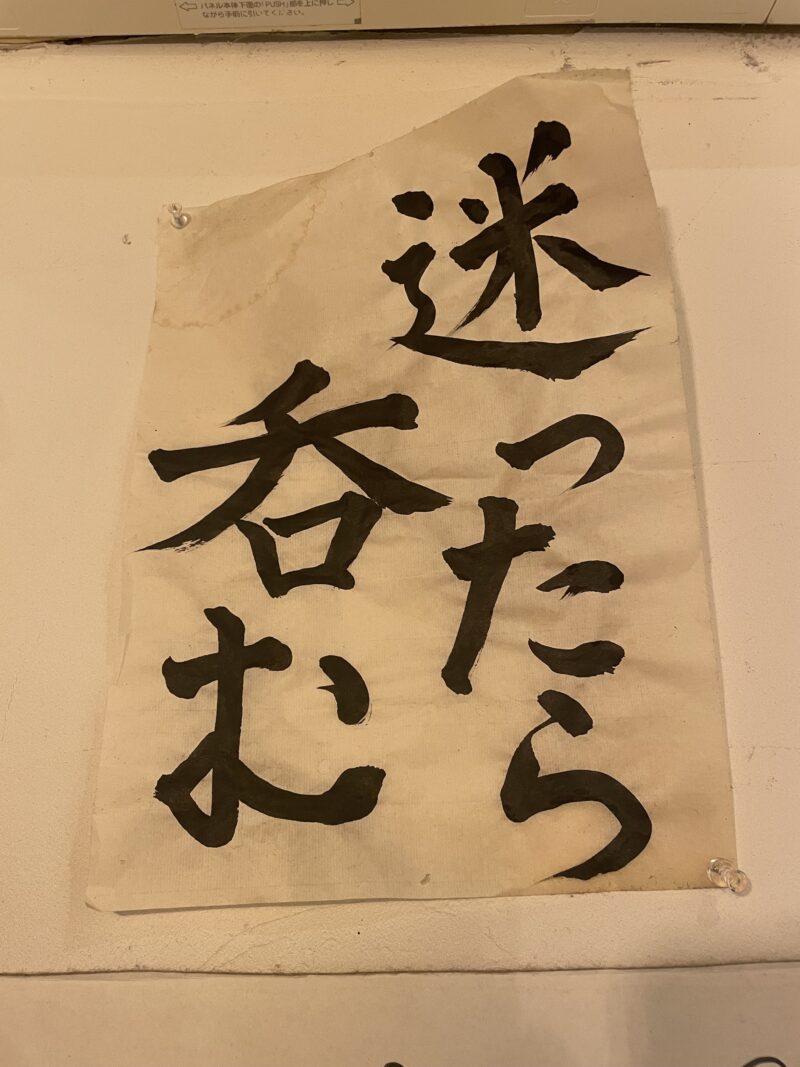 パネル本体下面の「PUSH」部を上に押し
ながら手前に引いてください。
迷ったら
呑む